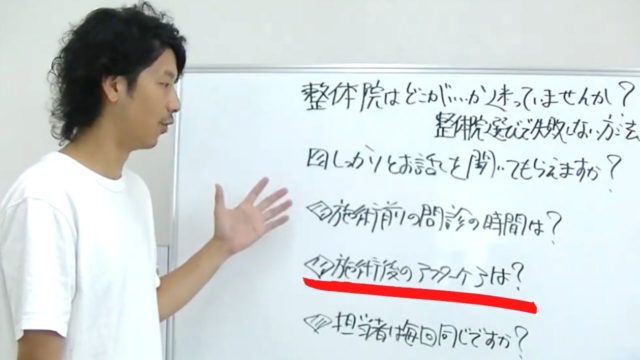 整体院はどこがいいか迷っていませんか？
整体院選びで失敗しない方法
☑しっかりとお話しを聞いてもらえますか？
☑施術前の問診の時間は？
☑施術後のアフターケアは？
☑担当者は毎回同じですか？